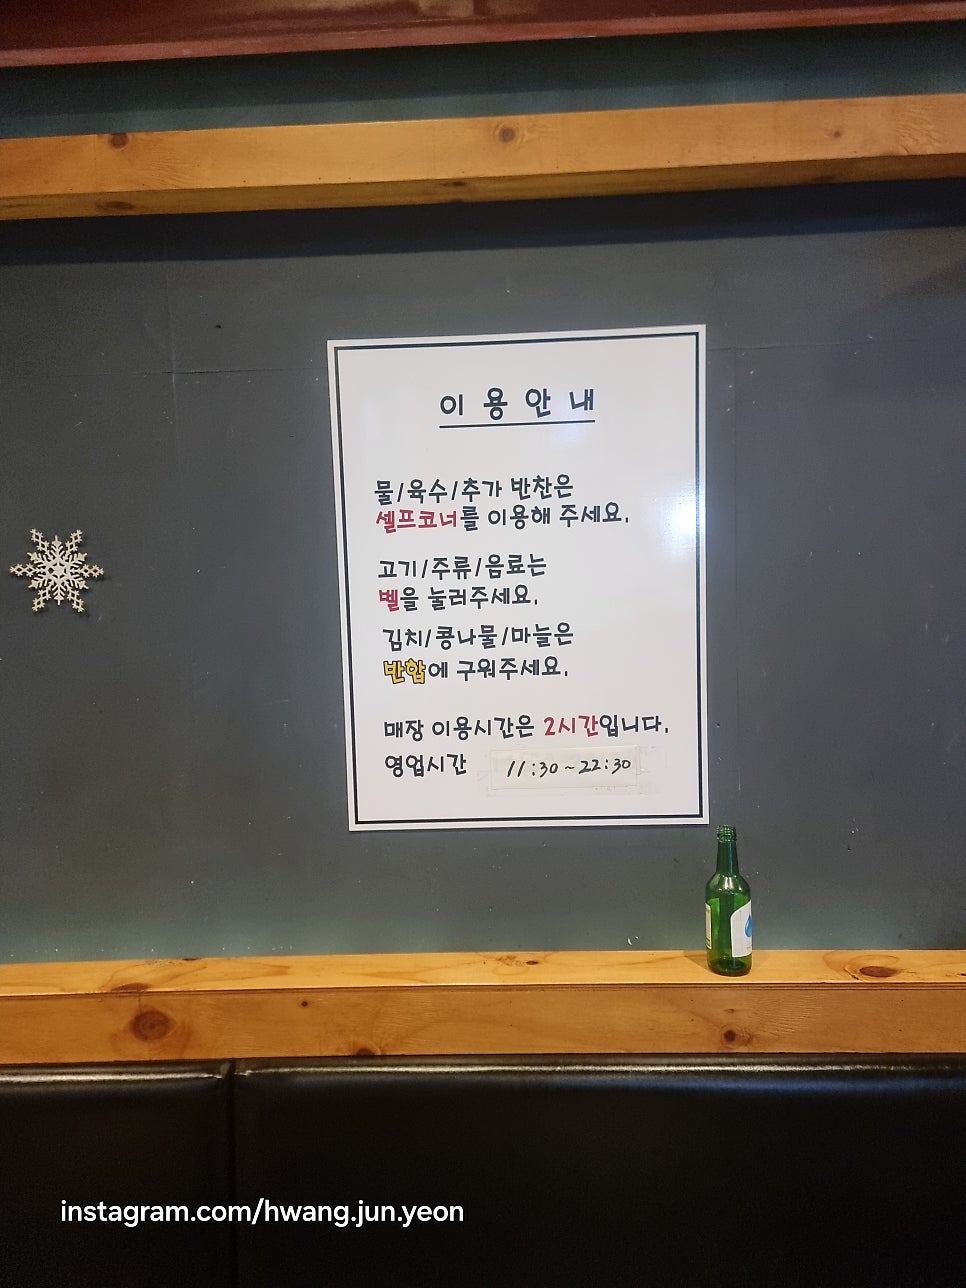 이 용 안 내
물/육수/추가 반찬은
셀프코너를 이용해 주세요.
고기/주류/음료는
벨을 눌러주세요.
김치/콩나물/마늘은
반합에 구워주세요.
매장 이용시간은 2시간입니다.
영업시간 11:30~22:30
instagram.com/hwang.jun.yeon